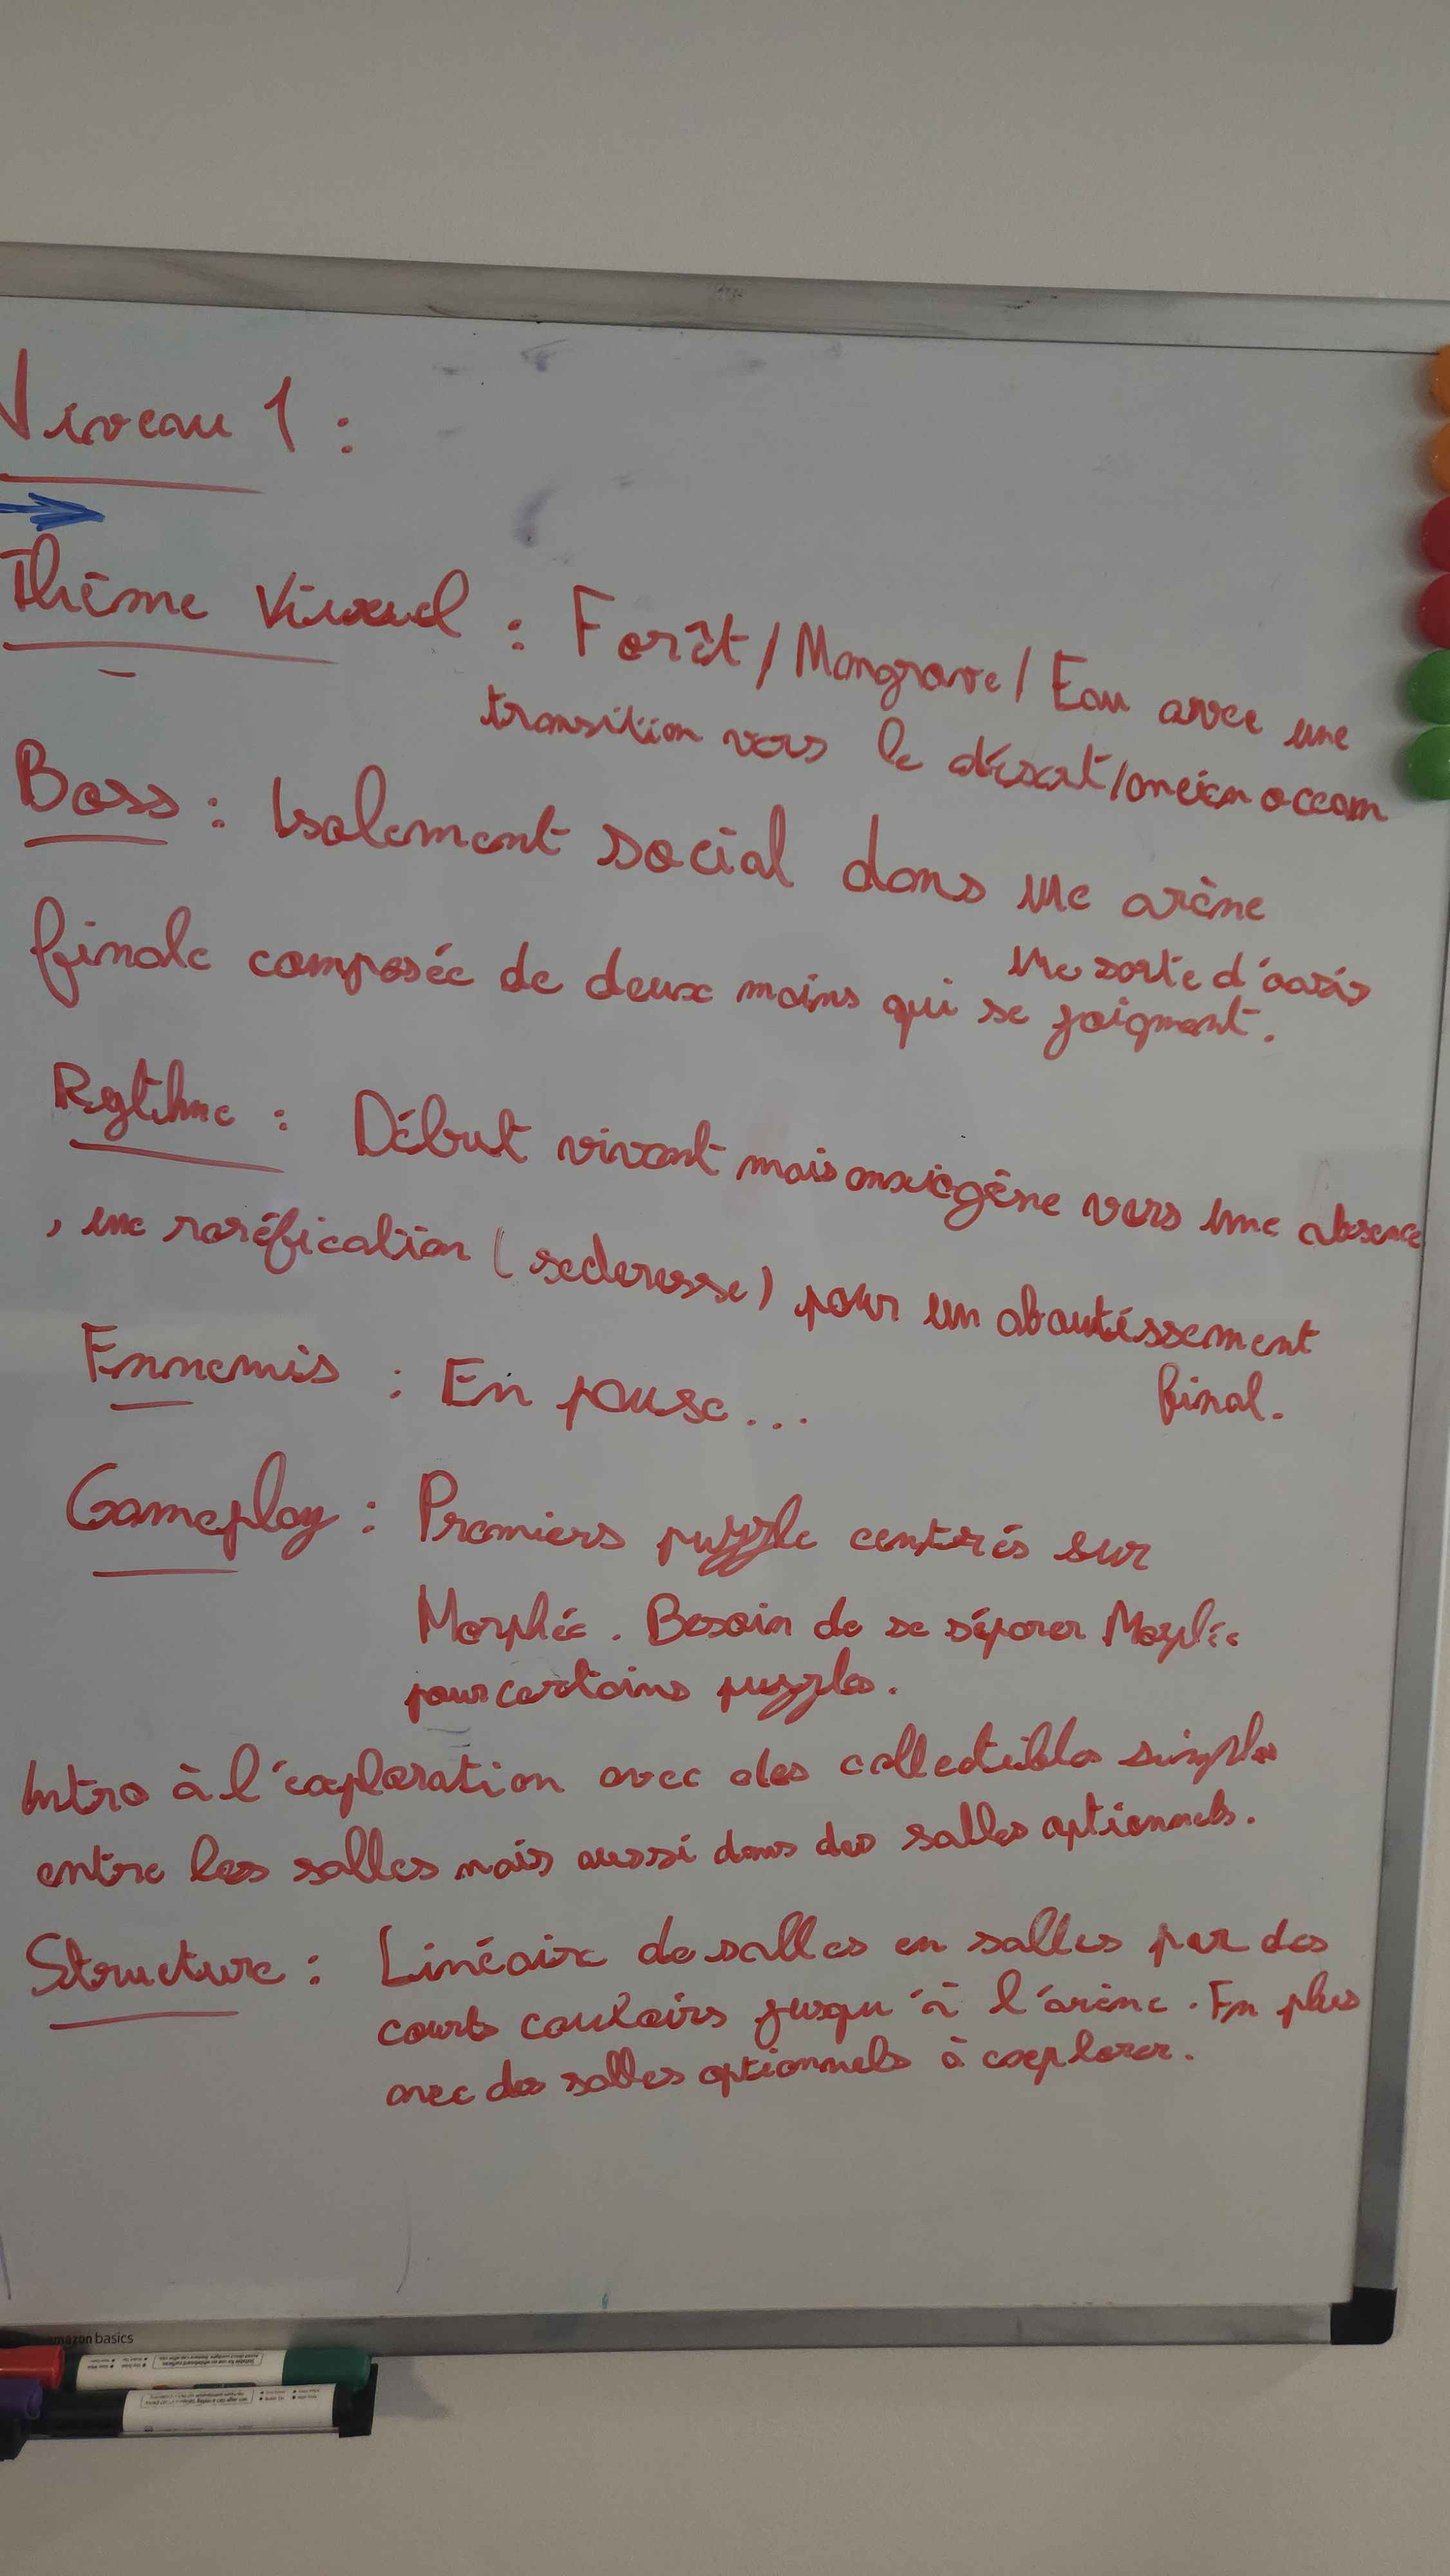 Niveau 1 :
Thème Visuel : Forêt / Mangrove / Eau avec une
transition vers le désert / ancien occean
Boss : Isolement social dans une arène
une sorte d'oasis
finale composée de deux mains qui se joignent.
Rythme : Début vivant mais anxiogène vers une absence
, une raréfication (secheresse) pour un aboutissement
final.
Ennemis : En pause...
Gameplay : Premiers puzzle centrés sur
Morphée. Besoin de se séparer Morphée
pour certains puzzles.
Intro à l'exploration avec des collectibles simples
entre les salles mais aussi dans des salles optionnels.
Structure : Linéaire de salles en salles par des
courts couloirs jusqu'à l'arène. En plus
avec des salles optionnels à explorer.
amazon basics